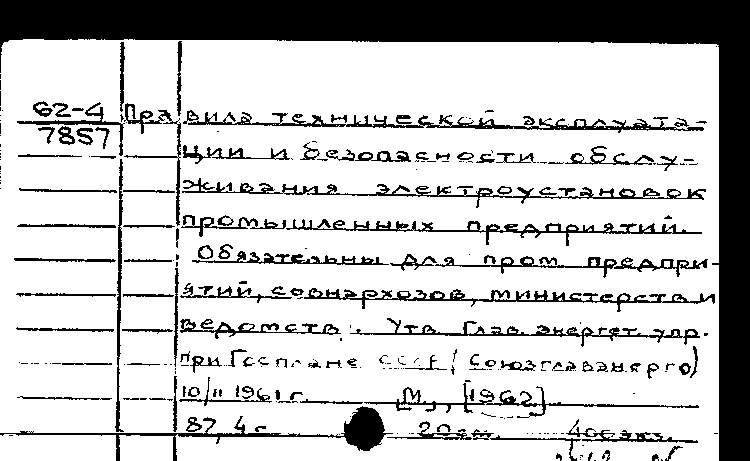 62-4 Правила технической эксплуата-
7857
ции и безопасности обслу-
живания электроустановок
промышленных предприятий.
Обязательны для пром предпри-
ятий, совнархозов, министерств и
ведомств. Утв Глав. энергет. упр.
при Госплане СССР (Союзглавэнерго)
10/II 1961 г. [М.], [1962].
87, 4 с 20 см. 40 экз.